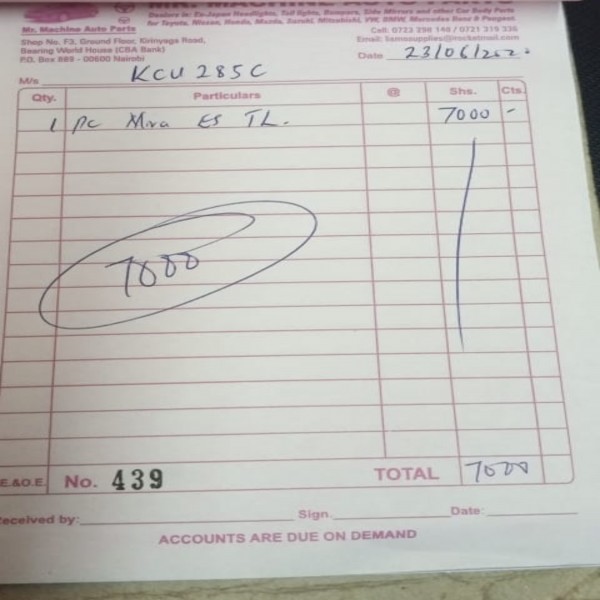 MR. MACHINE AUTO PARTS
Dealers in: Ex-Japan Headlights, Tail lights, Bumpers, Side Mirrors and other Car Body Parts
for Toyota, Nissan, Honda, Mazda, Suzuki, Mitsubishi, VW, BMW, Mercedes Benz & Peugeot.
Mr. Machine Auto Parts
Shop No. F3, Ground Floor, Kirinyaga Road,
Bearing World House (CBA Bank)
P.O. Box 889 - 00600 Nairobi
Cell: 0723 398 148 / 0721 319 336
Date 23/06/202
M/s KCU 285C
Qty. Particulars @ Shs. Cts.
1 pc Mira ES TL. 7000 -
7000
E.&O.E. No. 439 TOTAL 7000
Received by: Sign. Date:
ACCOUNTS ARE DUE ON DEMAND